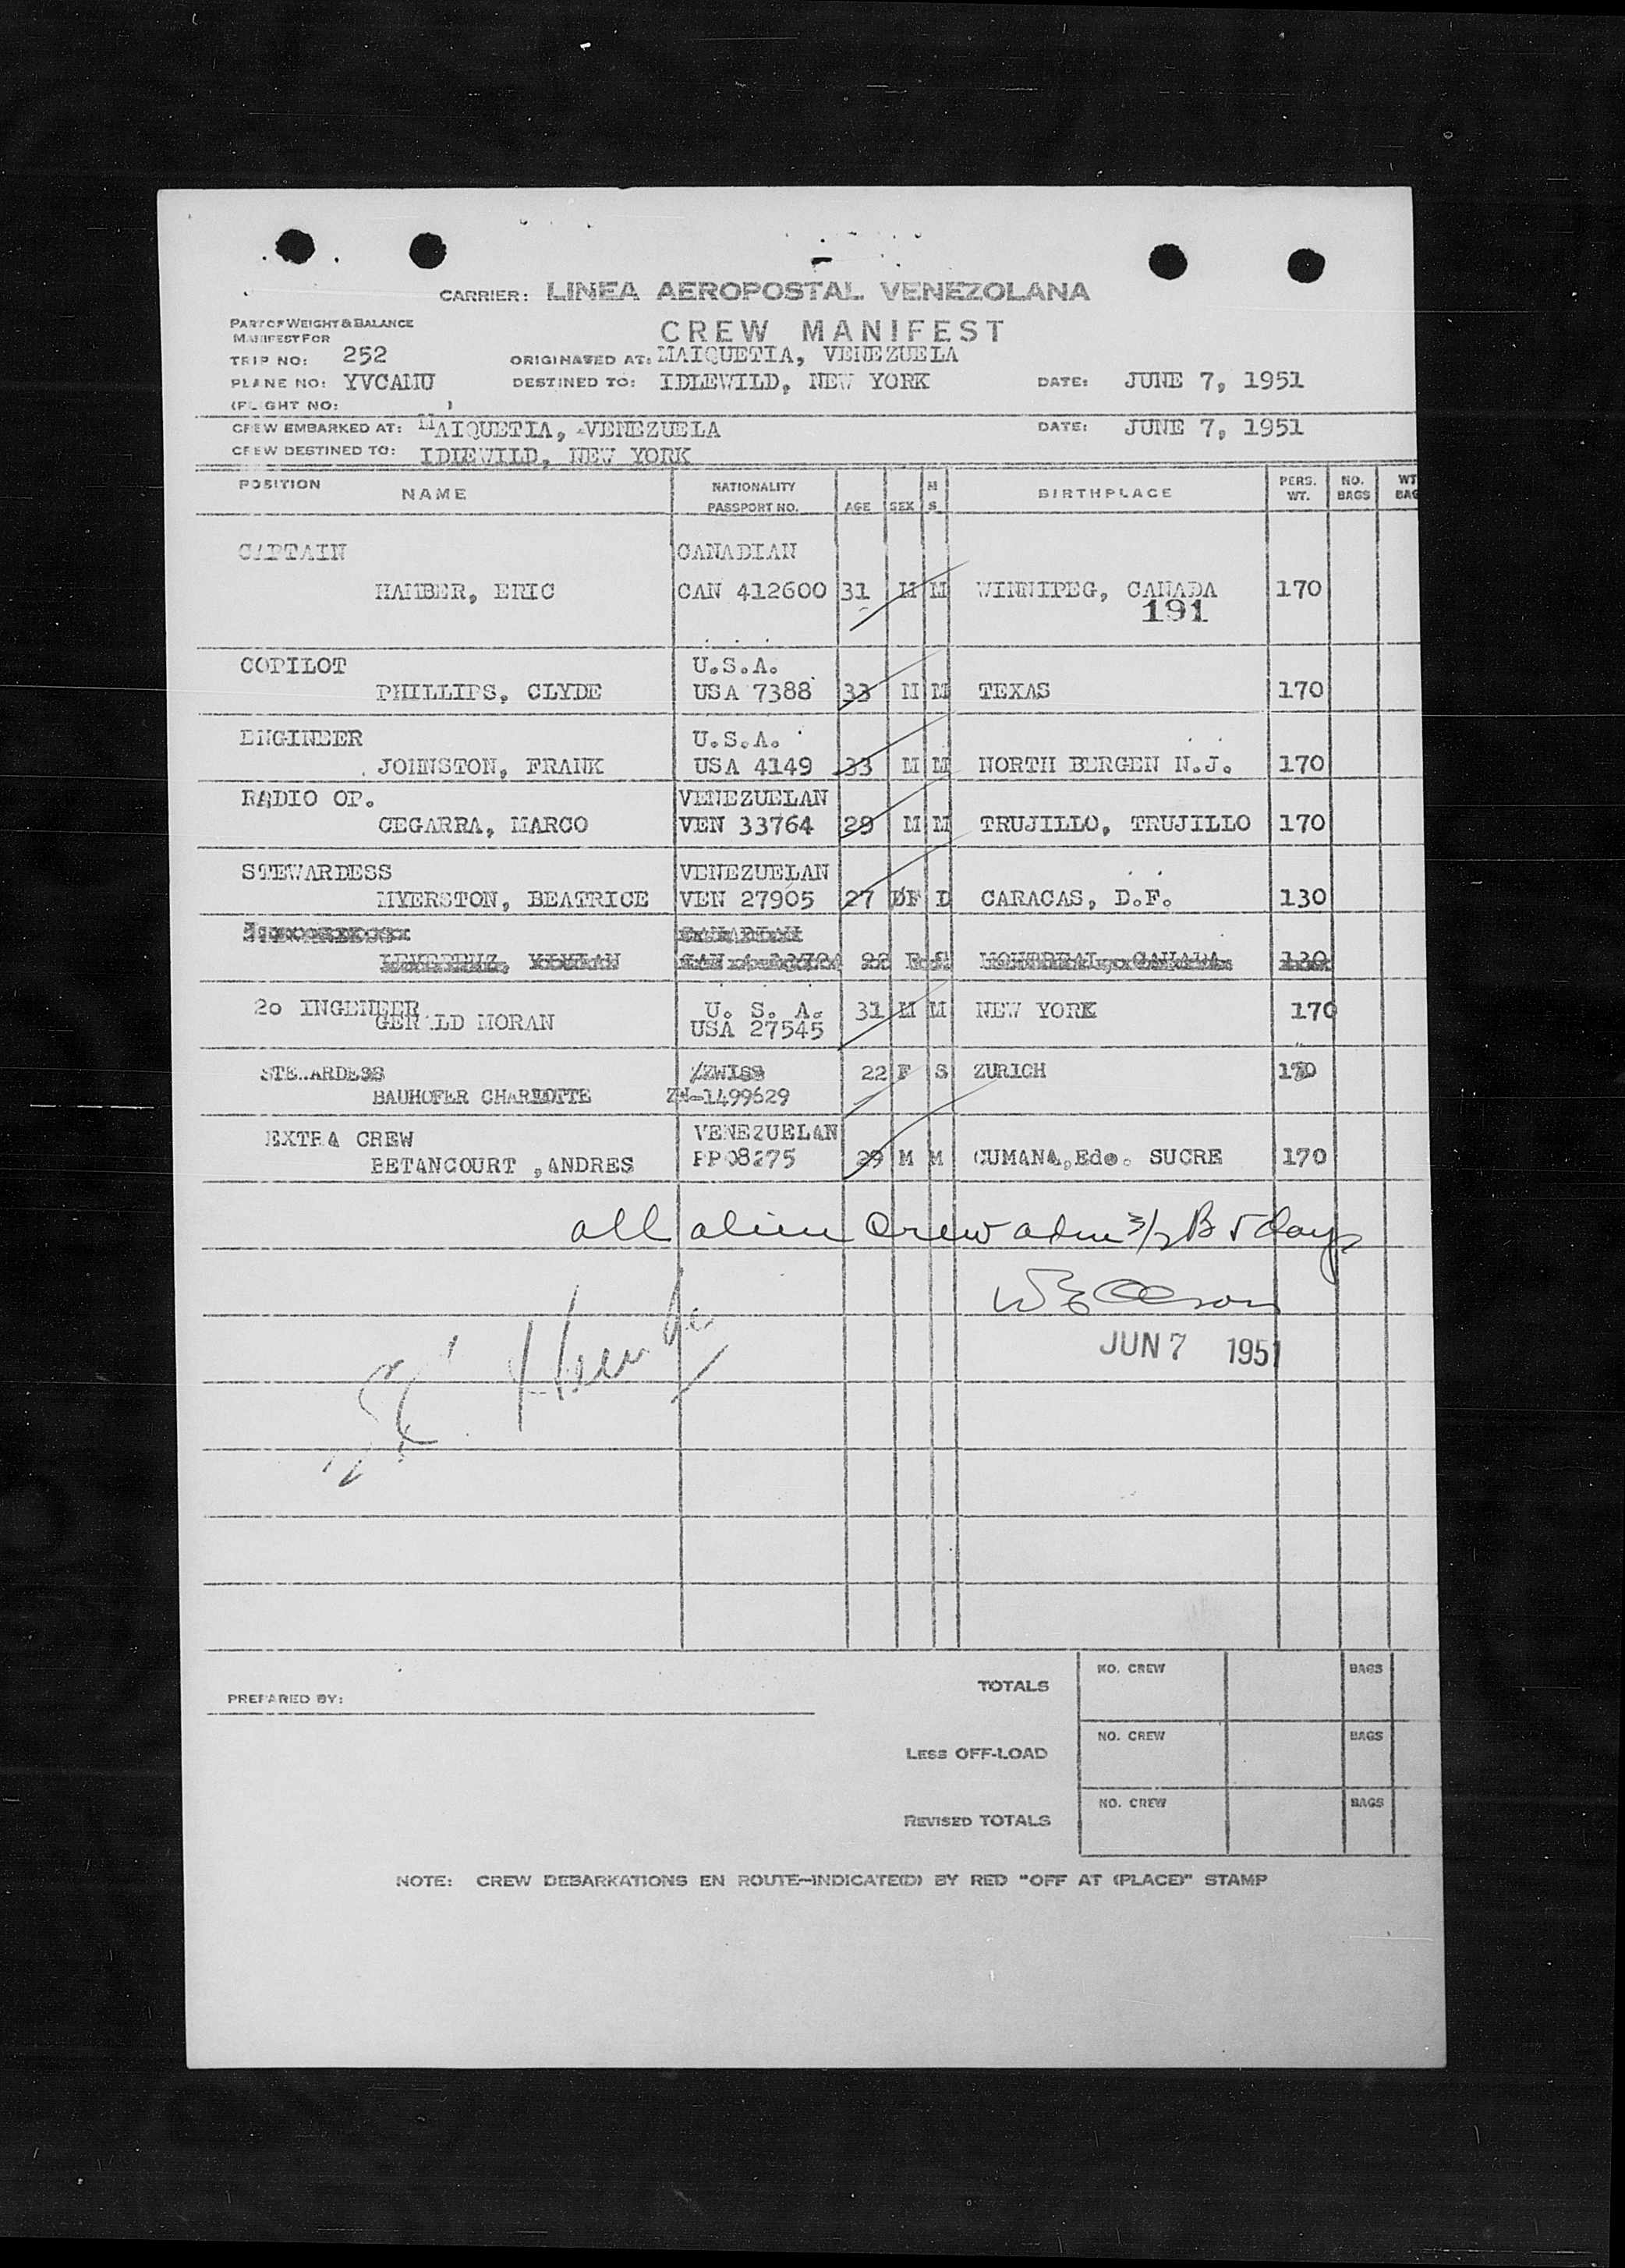 CARRIER: LINEA AEROPOSTAL VENEZOLANA
PART OF WEIGHT & BALANCE
MANIFEST FOR
CREW MANIFEST
TRIP NO: 252 ORIGINATED AT: MAIQUETIA, VENEZUELA
PLANE NO: YVCAMU DESTINED TO: IDLEWILD, NEW YORK DATE: JUNE 7, 1951
(FLIGHT NO: )
CREW EMBARKED AT: MAIQUETIA, VENEZUELA DATE: JUNE 7, 1951
CREW DESTINED TO: IDLEWILD, NEW YORK
POSITION NAME NATIONALITY PASSPORT NO. AGE SEX M S BIRTHPLACE PERS. WT. NO. BAGS WT BAG
CAPTAIN CANADIAN
HAMBER, ERIC CAN 412600 31 M M WINNIPEG, CANADA 170
191
COPILOT U.S.A.
PHILLIPS, CLYDE USA 7388 33 M M TEXAS 170
ENGINEER U.S.A.
JOHNSTON, FRANK USA 4149 33 M M NORTH BERGEN N.J. 170
RADIO OP. VENEZUELAN
CEGARRA, MARCO VEN 33764 29 M M TRUJILLO, TRUJILLO 170
STEWARDESS VENEZUELAN
MYERSTON, BEATRICE VEN 27905 27 F D CARACAS, D.F. 130
MONTREAL, CANADA 130
2o INGENEER U. S. A. 31 M M NEW YORK 170
GERALD MORAN USA 27545
STEWARDESS ZWISS 22 F S ZURICH
BAUHOFER CHARLOTTE ZH-1499629
EXTRA CREW VENEZUELAN
BETANCOURT ,ANDRES PP08275 29 M M CUMANA,Edo. SUCRE 170
all alien crew adm 3/2 B 5 days
JUN 7 1951
TOTALS NO. CREW BAGS
PREPARED BY:
LESS OFF-LOAD NO. CREW BAGS
REVISED TOTALS NO. CREW BAGS
NOTE: CREW DEBARKATIONS EN ROUTE-INDICATE(D) BY RED "OFF AT (PLACE)" STAMP